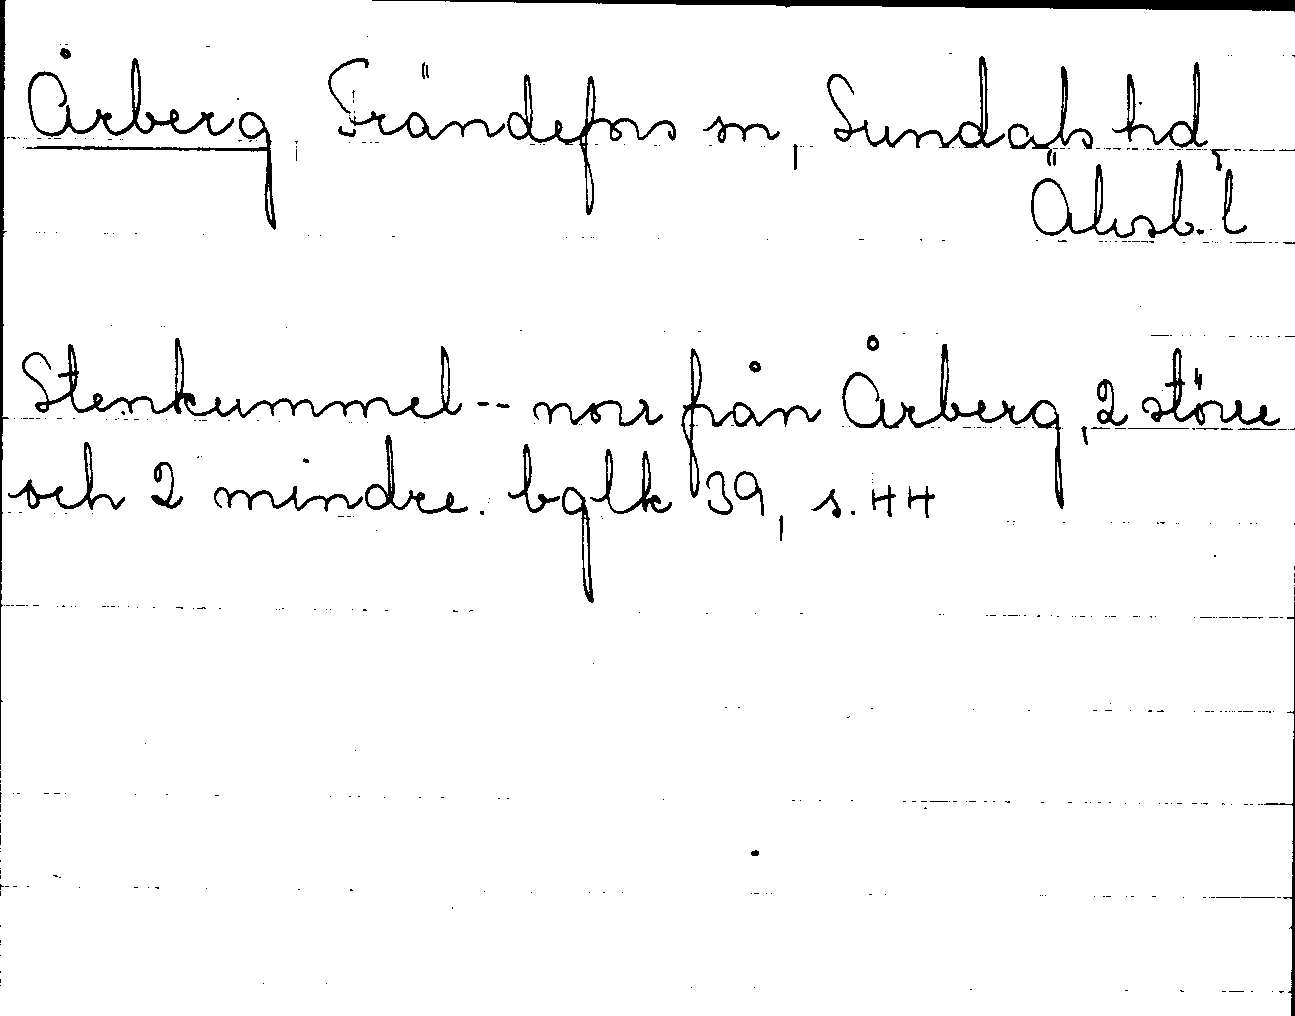 Årberg, Frändefors sn, Sundals hd,
Älvsb. l
Stenkummel -- norr från Årberg, 2 större
och 2 mindre. bglk 39, s. 44